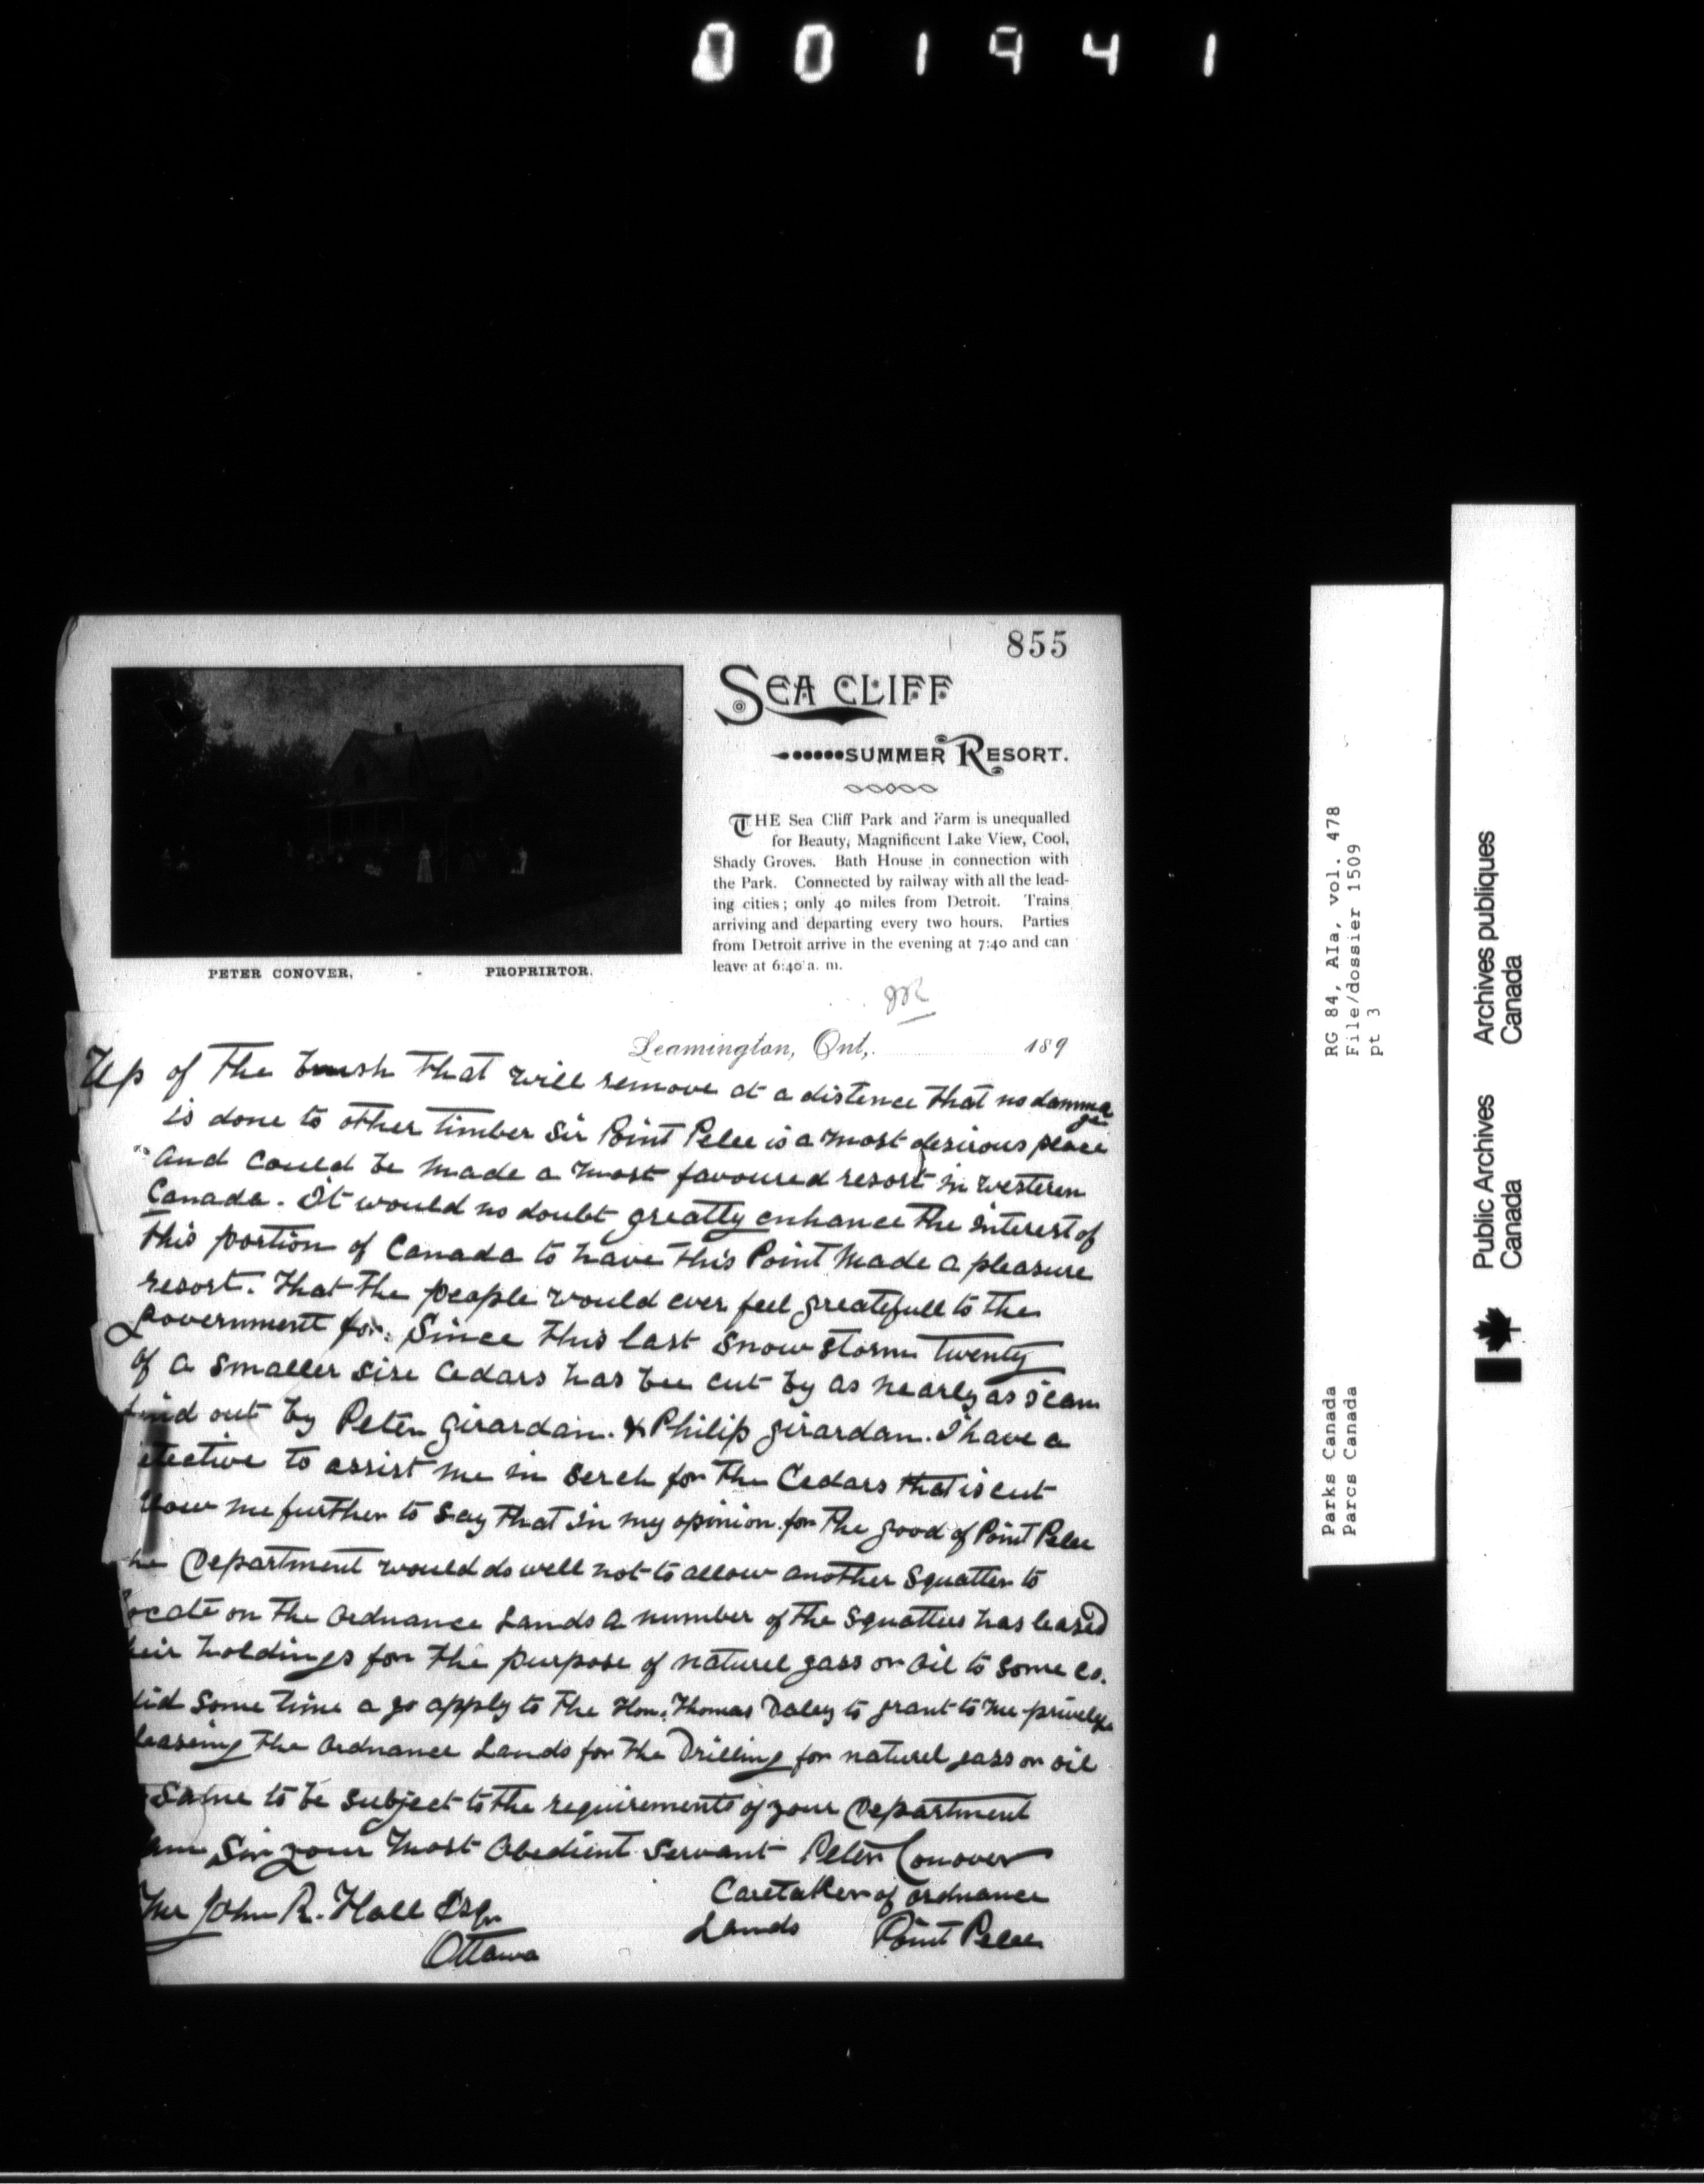 001941
855
SEA CLIFF
SUMMER RESORT.
THE Sea Cliff Park and Farm is unequalled
for Beauty, Magnificent Lake View, Cool,
Shady Groves. Bath House in connection with
the Park. Connected by railway with all the lead-
ing cities; only 40 miles from Detroit. Trains
arriving and departing every two hours. Parties
from Detroit arrive in the evening at 7:40 and can
leave at 6:40 a. m.
PETER CONOVER, - PROPRIRTOR.
Leamington, Ont, 189
Up of the brush that will remove at a distence that no damma
ge
is done to other timber Sir Point Pelee is a most desirous place
And could be made a most favoured resort in westeren
Canada. It would no doubt greatly enhance the interest of
this portion of Canada to have this Point Made a pleasure
resort. That the people would ever feel greatefull to the
government for. Since this last snow storm Twenty
of a smaller sise Cedars has bee cut by as nearly as I can
find out by Peter Girardan. & Philip Girardan. I have a
etective to assist me in serch for the Cedars that is cut
llow me further to say that in my opinion for the good of Point Pelee
he Department would do well not to allow another Squatter to
locate on the Ordnance Lands A number of the squatters has leased
heir holdings for the purpose of naturel gass or Oil to some Co.
did some time a go apply to the Hon. Thomas Daley to grant to me privelge
leasing the Ordnance Lands for the Drilling for naturel gass or oil
Same to be subject to the requirements of your Department
am Sir your Most Obedient Servant Peter Conover
Caretaker of ordnance
Lands Point Pelee
John R. Hall Esqr
Ottawa
RG 84, AIa, vol. 478
File/dossier 1509
pt 3
Parks Canada
Parcs Canada
Public Archives
Canada
Archives publiques
Canada